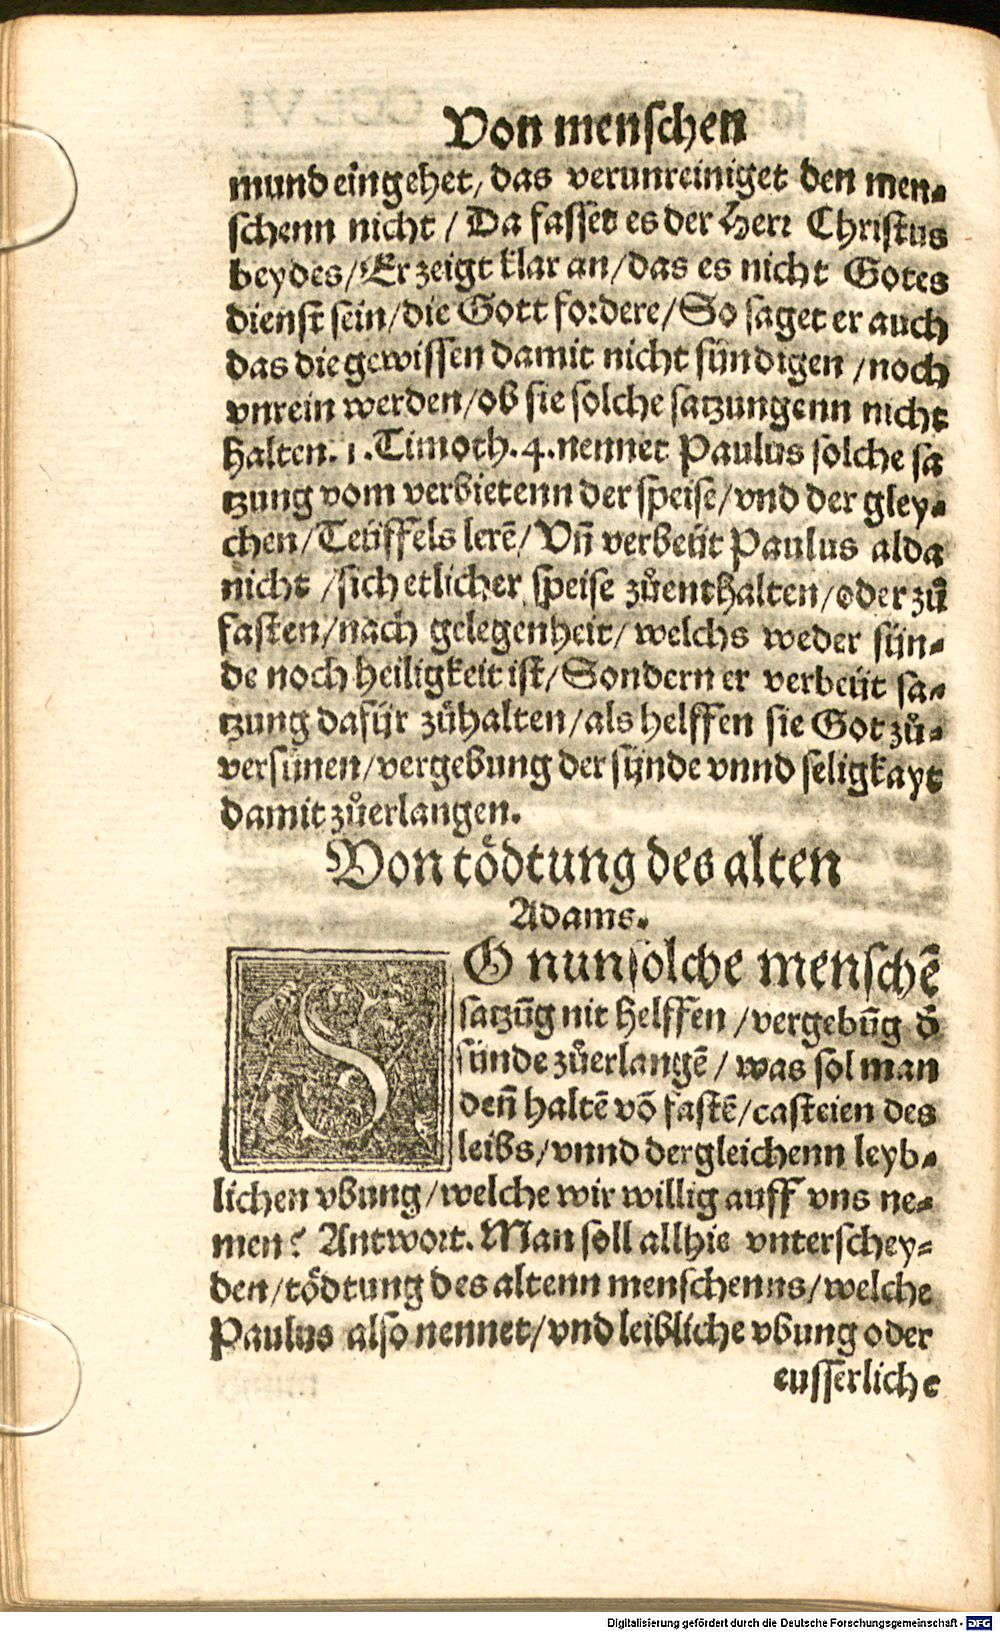 Von menschen
mund eingehet, das verunreiniget den men-
schenn nicht / Da fasset es der Herr Christus
beydes / Er zeigt klar an / das es nicht Gotes
dienst sein / die Gott fordere / So saget er auch
das die gewissen damit nicht sündigen / noch
vnrein werden / ob sie solche satzungenn nicht
halten. 1. Timoth. 4. nennet Paulus solche sa
tzung vom verbietenn der speise / vnd der gley-
chen / Teüffels lerẽ / Vñ verbeüt Paulus alda
nicht / sich etlicher speise zůenthalten / oder zů
fasten / nach gelegenheit / welchs weder sün-
de noch heiligkeit ist / Sondern er verbeüt sa-
tzung dafür zůhalten / als helffen sie Got zů-
versünen / vergebung der sünde vnnd seligkayt
damit zůerlangen.
Von tödtung des alten
Adams.
SO nun solche menschẽ
satzũg nit helffen / vergebũg d̃
sünde zůerlangẽ / was sol man
deñ haltẽ võ fastẽ / casteien des
leibs / vnnd dergleichenn leyb-
lichen vbung / welche wir willig auff vns ne-
men? Antwort. Man soll allhie vnterschey-
den / tödtung des altenn menschenns / welche
Paulus also nennet / vnd leibliche vbung oder
eusserliche
Digitalisierung gefördert durch die Deutsche Forschungsgemeinschaft - DFG